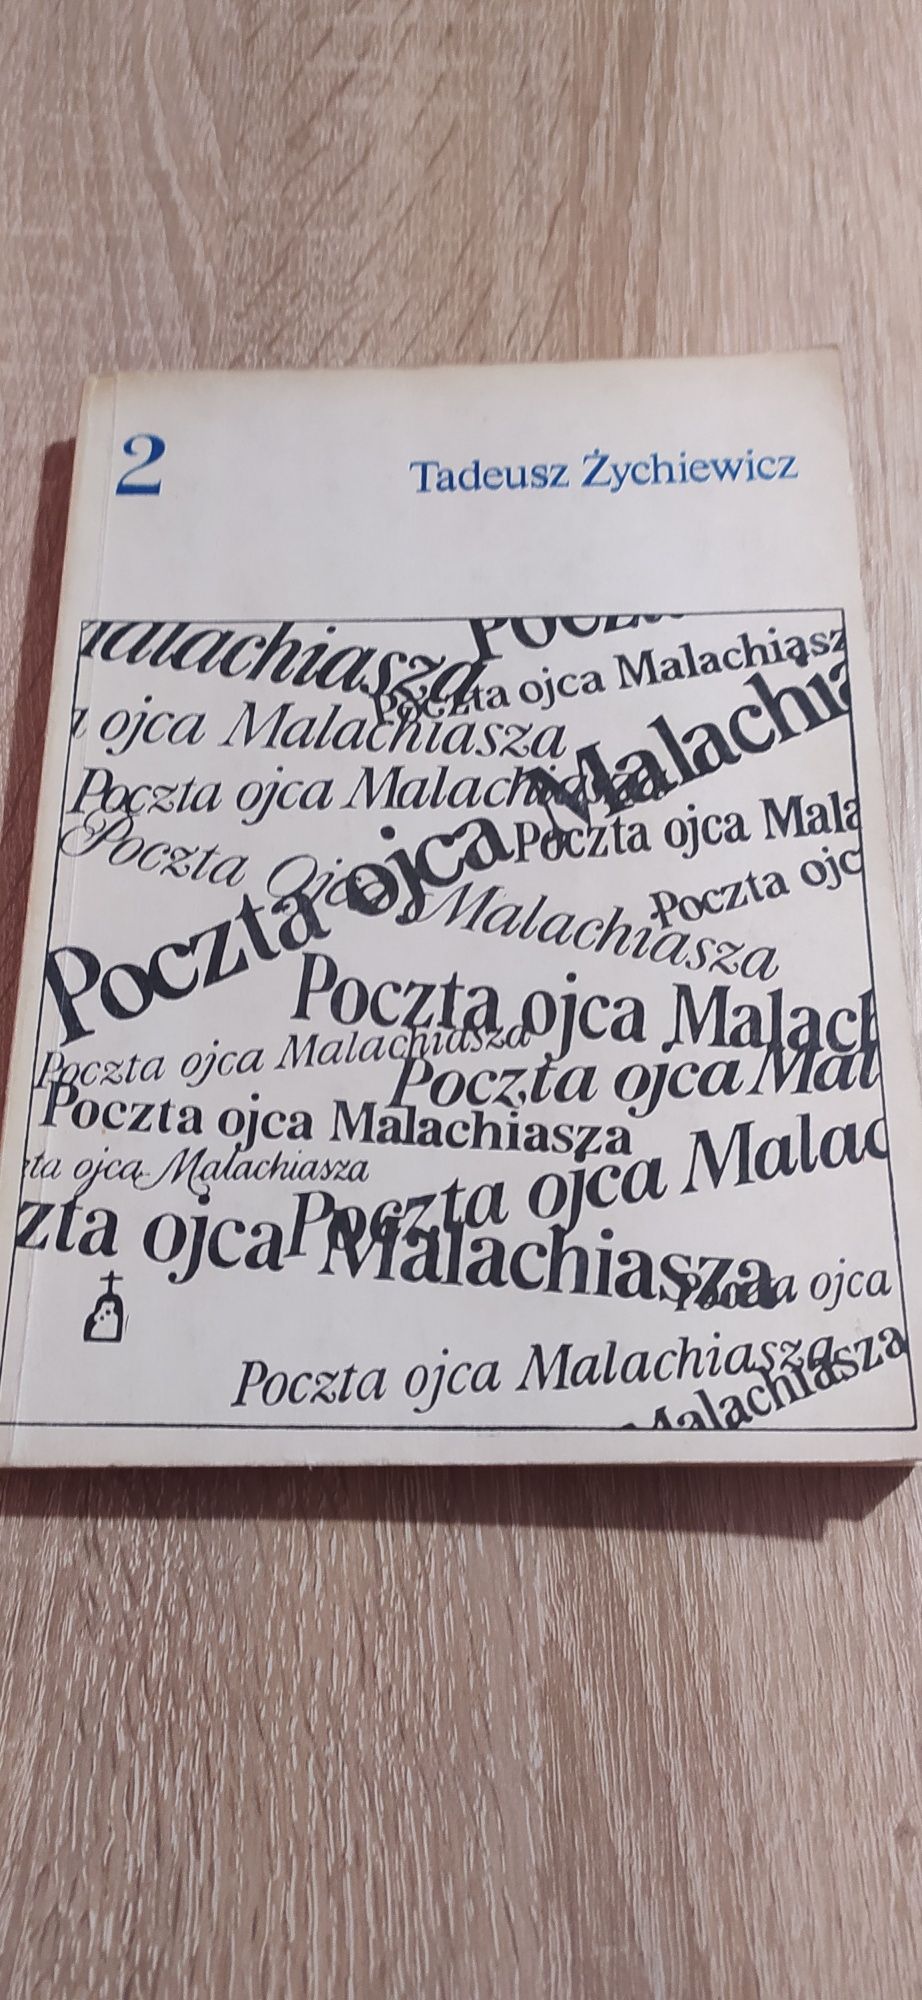 2
Tadeusz Żychiewicz
Malachiasza
Poczta ojca Malachiasz
ojca Malachiasza
Poczta ojca Malachiasza
Poczta ojca Malachia
Poczta ojca Mala
Poczta Ojca Malachiasza
Poczta ojc
Poczta ojca Malach
Poczta ojca Malachiasza
Poczta ojca Mal
Poczta ojca Malachiasza
ta ojca Malachiasza
Poczta ojca Malac
zta ojca Malachiasza
Poczta ojca
Poczta ojca Malachiasza
Malachiasza